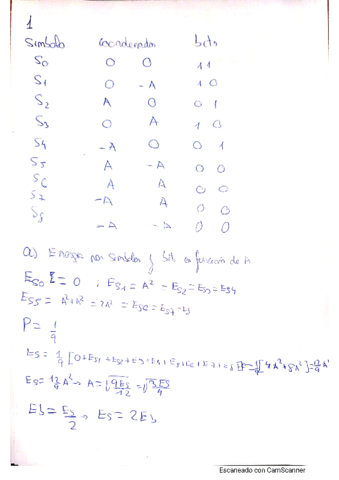 1
Simbolo coordenadas bits
S0 0 0 11
S1 0 -A 10
S2 A 0 01
S3 0 A 10
S4 -A 0 01
S5 A -A 00
S6 A A 00
S7 -A A 00
S8 -A -A 00
a) Energia por simbolo y bit en función de A
Es0 = 0 ; Es1 = A² = Es2 = Es3 = Es4
Es5 = A²+A² = 2A² = Es6 = Es7
P = 1/9
Es = 1/9 [0+Es1+Es2+Es3+Es4+Es5+Es6+Es7+ [4A²+8A²]
Es = 12/9 A² → A = √9Es/12 = √3Es/4
Eb = Es/2 → Es = 2Eb
Escaneado con CamScanner